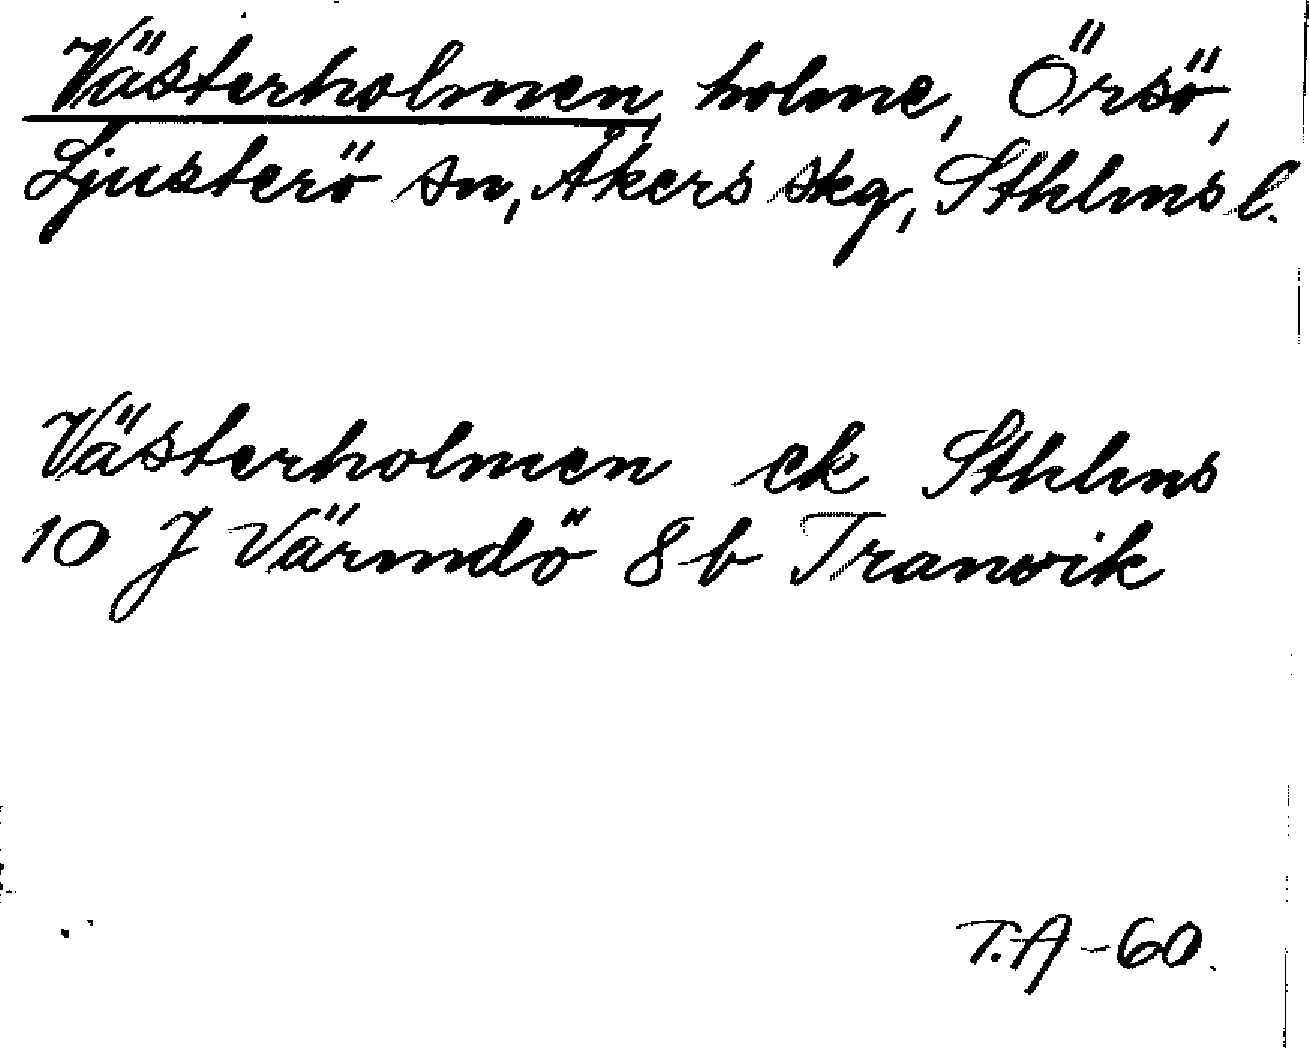 Västerholmen, holme, Örsö,
Ljusterö sn, Åkers skg, Sthlms l.
Västerholmen ek Sthlms
10 J Värmdö 8 b Tranvik
T.A -60.